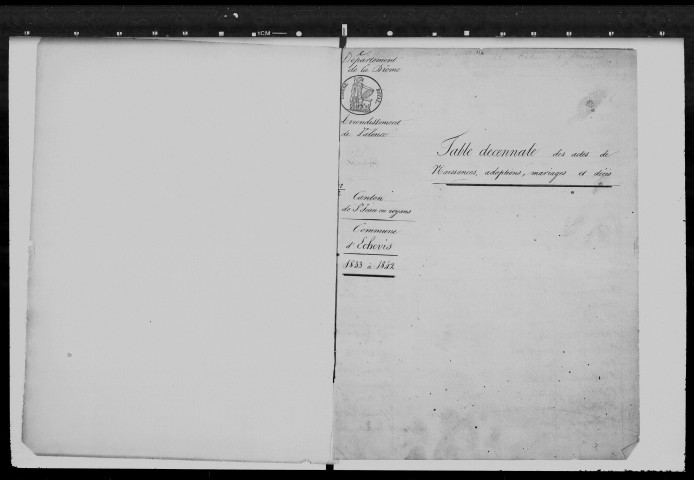 Département
de la Drôme
Arrondissement
de Valence
Canton
de St Jean en royans
Commune
d'Echevis
1833 à 1842
Table decennale des actes de
Naissances, adoptions, mariages et décès